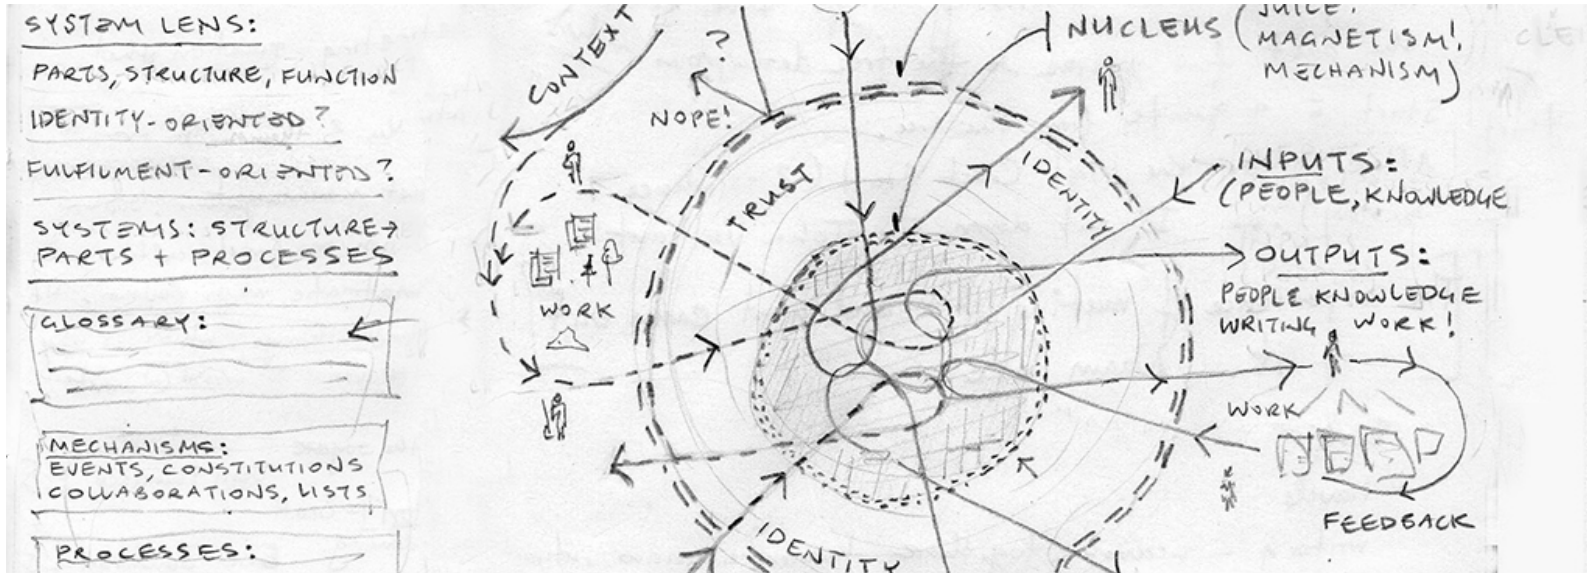 SYSTEM LENS:
PARTS, STRUCTURE, FUNCTION
IDENTITY-ORIENTED?
FULFILMENT-ORIENTED?
SYSTEMS: STRUCTURE→
PARTS + PROCESSES
GLOSSARY:
MECHANISMS:
EVENTS, CONSTITUTIONS
COLLABORATIONS, LISTS
PROCESSES:
CONTEXT
?
NOPE!
WORK
TRUST
IDENTITY
IDENTITY
NUCLEUS (JUICE!
MAGNETISM!,
MECHANISM)
INPUTS:
(PEOPLE, KNOWLEDGE
OUTPUTS:
PEOPLE KNOWLEDGE
WRITING WORK!
WORK
FEEDBACK